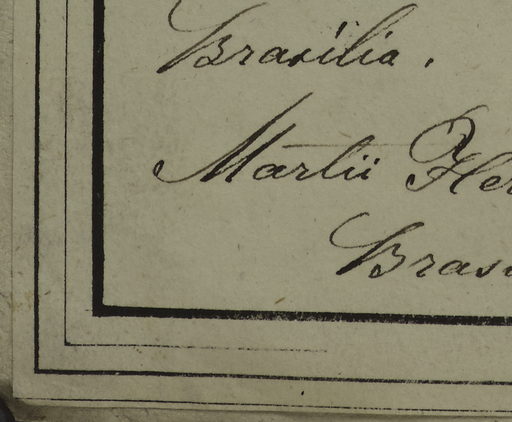 Brasilia.
Martii Her
Brasi